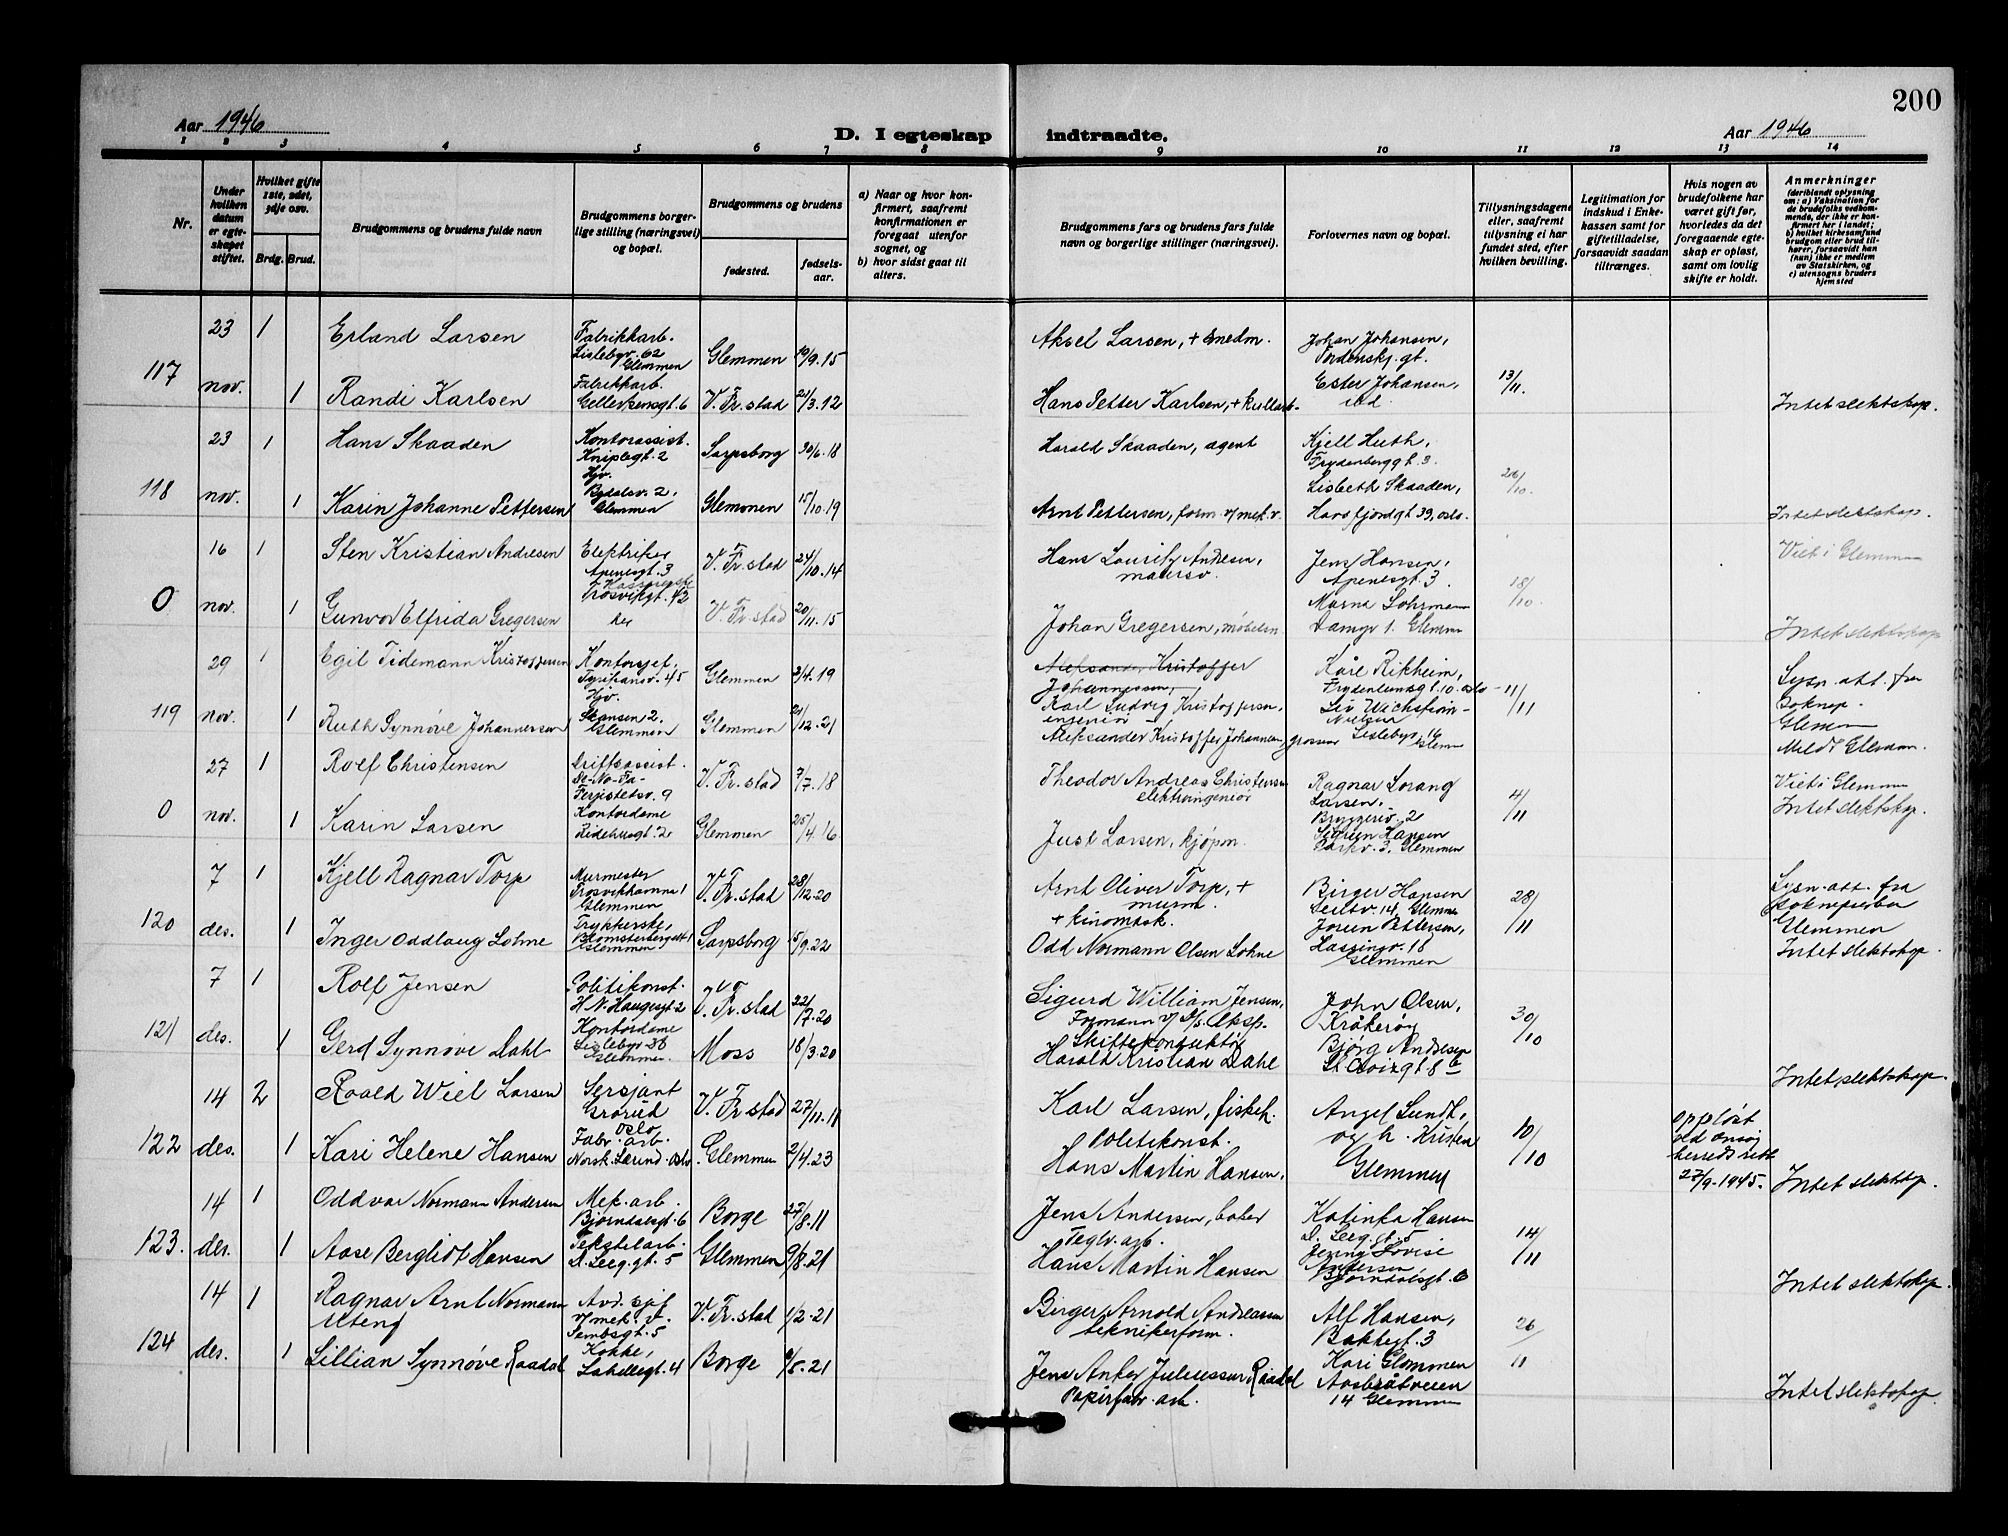 200
Aar 1946
D. I egteskap indtraadte.
Aar 1946
1 2 3 4 5 6 7 8 9 10 11 12 13 14
Nr.
Under hvilken datum er egteskapet stiftet.
Hvilket gifte 1ste, 2det, 3dje osv.
Brdg. Brud.
Brudgommens og brudens fulde navn
Brudgommens borgerlige stilling (næringsvei) og bopæl.
Brudgommens og brudens
fødested.
fødselsaar.
a) Naar og hvor konfirmert, saafremt konfirmationen er foregaat utenfor sognet, og
b) hvor sidst gaat til alters.
Brudgommens fars og brudens fars fulde navn og borgerlige stillinger (næringsvei).
Forlovernes navn og bopæl.
Tillysningsdagene eller, saafremt tillysning ei har fundet sted, efter hvilken bevilling.
Legitimation for indskud i Enkekassen samt for giftetilladelse, forsaavidt saadan tiltrænges.
Hvis nogen av brudefolkene har været gift før, hvorledes da det foregaaende egteskap er opløst, samt om lovlig skifte er holdt.
Anmerkninger
(deriblandt oplysning om: a) Vaksination for de brudefolks vedkommende, der ikke er konfirmert her i landet; b) hvilket kirkesamfund brudgom eller brud tilhører, forsaavidt han (hun) ikke er medlem av Statskirken, og c) utensogns bruders hjemsted
117
23 nov.
1 Erland Larsen
Fabrikkarb. Lislebyv. 62 Glemmen
Glemmen 19/9.15
Aksel Larsen, + smedm.
Johan Johansen, Tordenskj.gt.
1 Randi Karlsen
Fabrikkarb.
V. Fr.stad 21/3.12
Hans Petter Karlsen, +
Ester Johansen, ibd.
13/11.
Intet slektskap.
118
23 nov.
1 Hans Skaaden
Kontorassist. Kniplegt. 2
Sarpsborg 30/6.18
Harald Skaaden, agent
Kjell Huth, Frydenberggt. 3.
1 Karin Johanne Pettersen
Hjv. Bydalsv. 2, Glemmen
Glemmen 15/10.19
Arnt Pettersen, form. v/ mek. v.
Lisbeth Skaaden, Harsfjordgt 39, Oslo.
26/10.
Intet slektskap.
0
16 nov.
1 Sten Kristian Andresen
Elektriker Apenesgt. 3
V. Fr.stad 24/10.14
Hans Lauritz Andresen, maskinv.
Jens Hansen, Apenesgt 3.
Viet i Glemmen
1 Gunvor Elfrida Gregersen
Trosvikgt. 42 her
V. Fr.stad 20/11.15
Johan Gregersen,
Marna Lohrmann Damyr 1. Glemm
18/10.
Intet slektskap
119
29 nov.
1 Egil Tidemann Kristoffersen
Kontorsjef, 45
Glemmen 2/4.19
Aleksander Kristoffer Johannessen,
Karl Ludvig Kristoffersen, ingeniør
Kåre Rikheim, Frydenlundsgt. 10. Oslo
Lysn. att. fra soknep. Glemm
1 Ruth Synnøve Johannessen
Hjv. Skansen 2. Glemmen
Glemmen 21/12.21
Aleksander Kristoffer Johannesen, grosserer
Liv Wichstrøm-Nielsen Lislebyv. 16 Glemm
11/11
Meldt Glemm.
0
27 nov.
1 Rolf Christensen
Driftsassist. De-No-Fa- Ferjestedsv. 9
V. Fr.stad 7/7.18
Theodor Andreas Christensen elektroingeniør
Ragnar Lorang Larsen, Bryggeriv. 2
Viet i Glemmen
1 Karin Larsen
Kontordame Ridehusgt. 2
Glemmen 25/4.16
Just Larsen, kjøpm.
Sigrun Hansen Parkv. 3, Glemmen
4/11
Intet slektskap.
120
7 des.
1 Kjell Ragnar Torp
Murmester Trosvikhamna 1 Glemmen
V. Fr.stad 28/12.20
Arnt Oliver Torp, + murm.
Birger Hansen 14, Glemm
Lysn. att. fra sokneprten Glemmen
1 Inger Oddlaug Lohne
Trykkerske, Glemmen
Sarpsborg 5/9.22
+ kinomask. Odd Normann Olsen Lohne
Jorun Pettersen, Hassingv. 18 Glemmen
28/11
Intet slektskap.
121
7 des.
1 Rolf Jensen
Politikonst. H.N. Haugesgt. 2
V. Fr.stad 22/7.20
Sigurd William Jensen, Formann
John Olsen, Kråkerøy
1 Gerd Synnøve Dahl
Kontordame Lislebyv. 36 Glemmen.
Moss 18/3.20
Skiftekonduktør Harald Kristian Dahl
Bjørg Andresen St. Olavsgt 8 b
30/10
Intet slektskap.
122
14 des.
2 Roald Wiel Larsen
Sersjant Grorud Oslo
V. Fr.stad 27/11.11
Karl Larsen, fiskeh.
Angel Lundh, og h. Kristen Glemmen
1 Kari Helene Hansen
Fabr. arb. Norsk. Lærind. Oslo
Glemmen 2/4.23
Politikonst. Hans Martin Hansen,
10/10
oppløst ved Onsøy herredsrett 27/9-1945.
Intet slektskap.
123.
14 des.
1 Oddvar Normann Andersen
Mek. arb. Bjørndalsgt. 6
Borge 27/8.11
Jens Andersen, baker
Katinka Hansen D. Seeg.gt. 5
1 Aase Berglidt Hansen
Tekstilarb. D. Seeg.gt. 5
Glemmen 9/8.21
Teglv.arb. Hans Martin Hansen
Jenny Lovise Andersen Bjørndalsgt. 6
14/11
Intet slektskap.
124
14 des.
1 Ragnar Arnt Normann Uteng
Avd. sjef v/ mek. v. Tombsgt. 5
V. Fr.stad 1/2.21
Birger Arnold Andreassen teknikerform.
Alf Hansen, Bakkegt. 3
1 Lillian Synnøve Raadal
Kokke, Lakollegt. 4
Borge 21
Jens Anker Juliussen Raadal Papirfabr. arb.
Kari Glemmen Aasbråtveien 14 Glemmen
26/11
Intet slektskap.